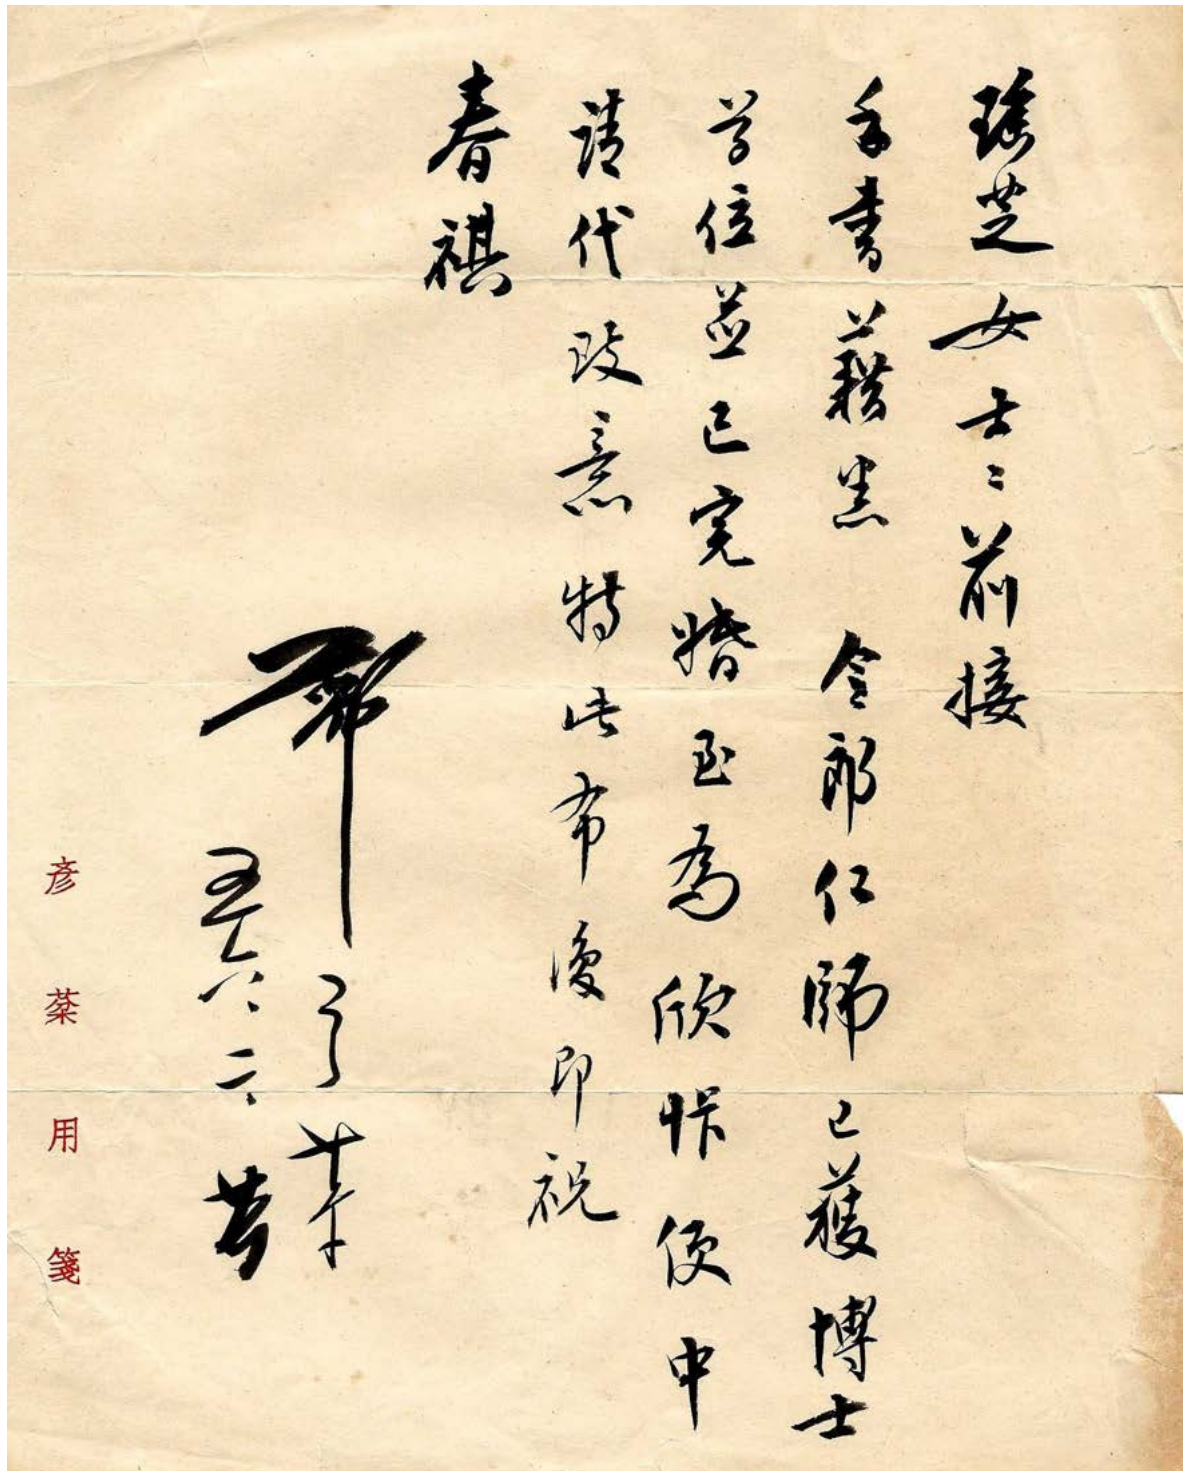 瑤芝女士士前接
手書藉悉 令郎仁師已獲博士
学位並已完婚至為欣忭便中
請代致意特此布復即祝
春祺
鄭彦棻
五六、二、
彦棻用箋